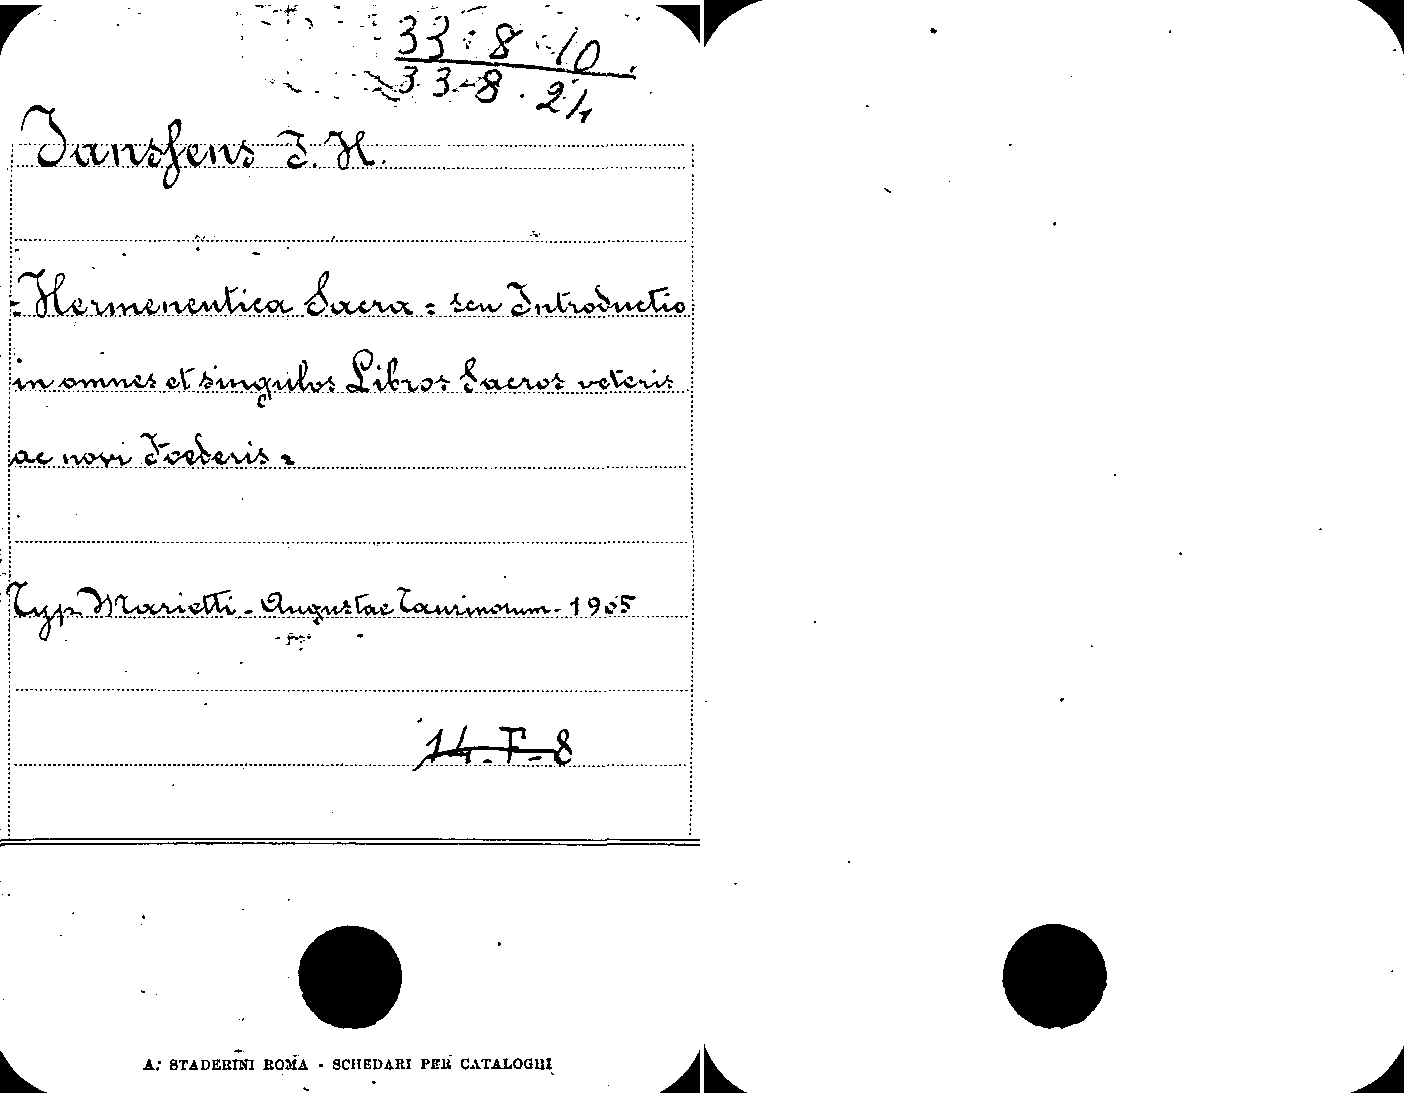 33.8.10.
33-8.24
Jansens J. H.
=Hermeneutica Sacra= seu Introductio
in omnes et singulos Libros Sacros veteris
ac novi Foederis=
Typ. Marietti - Augustae Taurinorum - 1905
14-F-8
A. STADERINI ROMA - SCHEDARI PER CATALOGHI